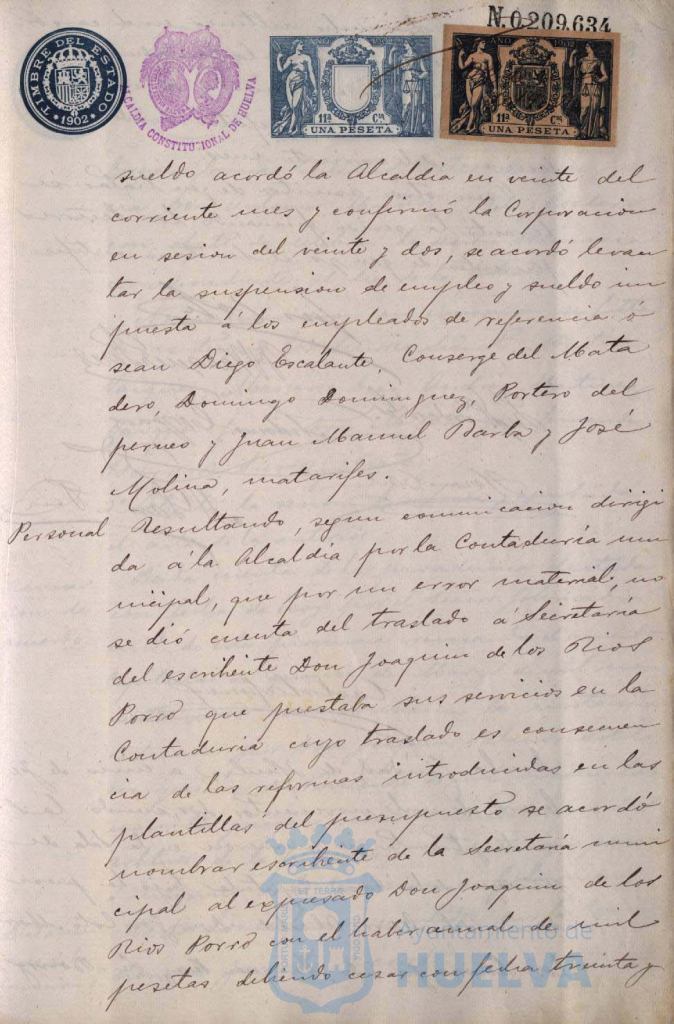 N. 0.209.634
TIMBRE DEL ESTADO
*1902*
ALCALDIA CONSTITUCIONAL DE HUELVA
11ª Cª
UNA PESETA
AÑO 1902
11ª Cª
UNA PESETA
sueldo acordó la Alcaldia en veinte del
corriente mes y confirmó la Corporacion
en sesion del veinte y dos, se acordó levan
tar la suspension de empleo y sueldo im
puesta á los empleados de referencia ó
sean Diego Escalante, Conserge del Mata
dero, Domingo Dominguez, Portero del
perneo y Juan Manuel Barba y José
Molina, matarifes.
Personal Resultando, segun comunicacion dirigi
da á la Alcaldía por la Contaduría mu
nicipal, que por un error material, no
se dió cuenta del traslado á Secretaría
del escribiente Don Joaquin de los Rios
Porro que prestaba sus servicios en la
Contaduria cuyo traslado es consecuen
cia de las reformas introducidas en las
plantillas del presupuesto se acordó
nombrar escribiente de la Secretaría muni
cipal al expresado Don Joaquin de los
Rios Porro con el haber anual de mil
pesetas debiendo cesar con fecha treinta y
Ayuntamiento de
HUELVA